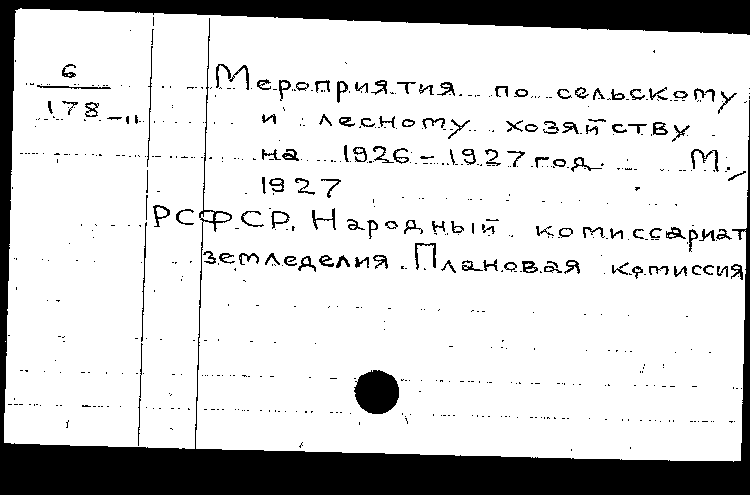 6
178-11
Мероприятия по сельскому
и лесному хозяйству
на 1926-1927 год. М.,
1927
РСФСР. Народный комиссариат
земледелия. Плановая комиссия